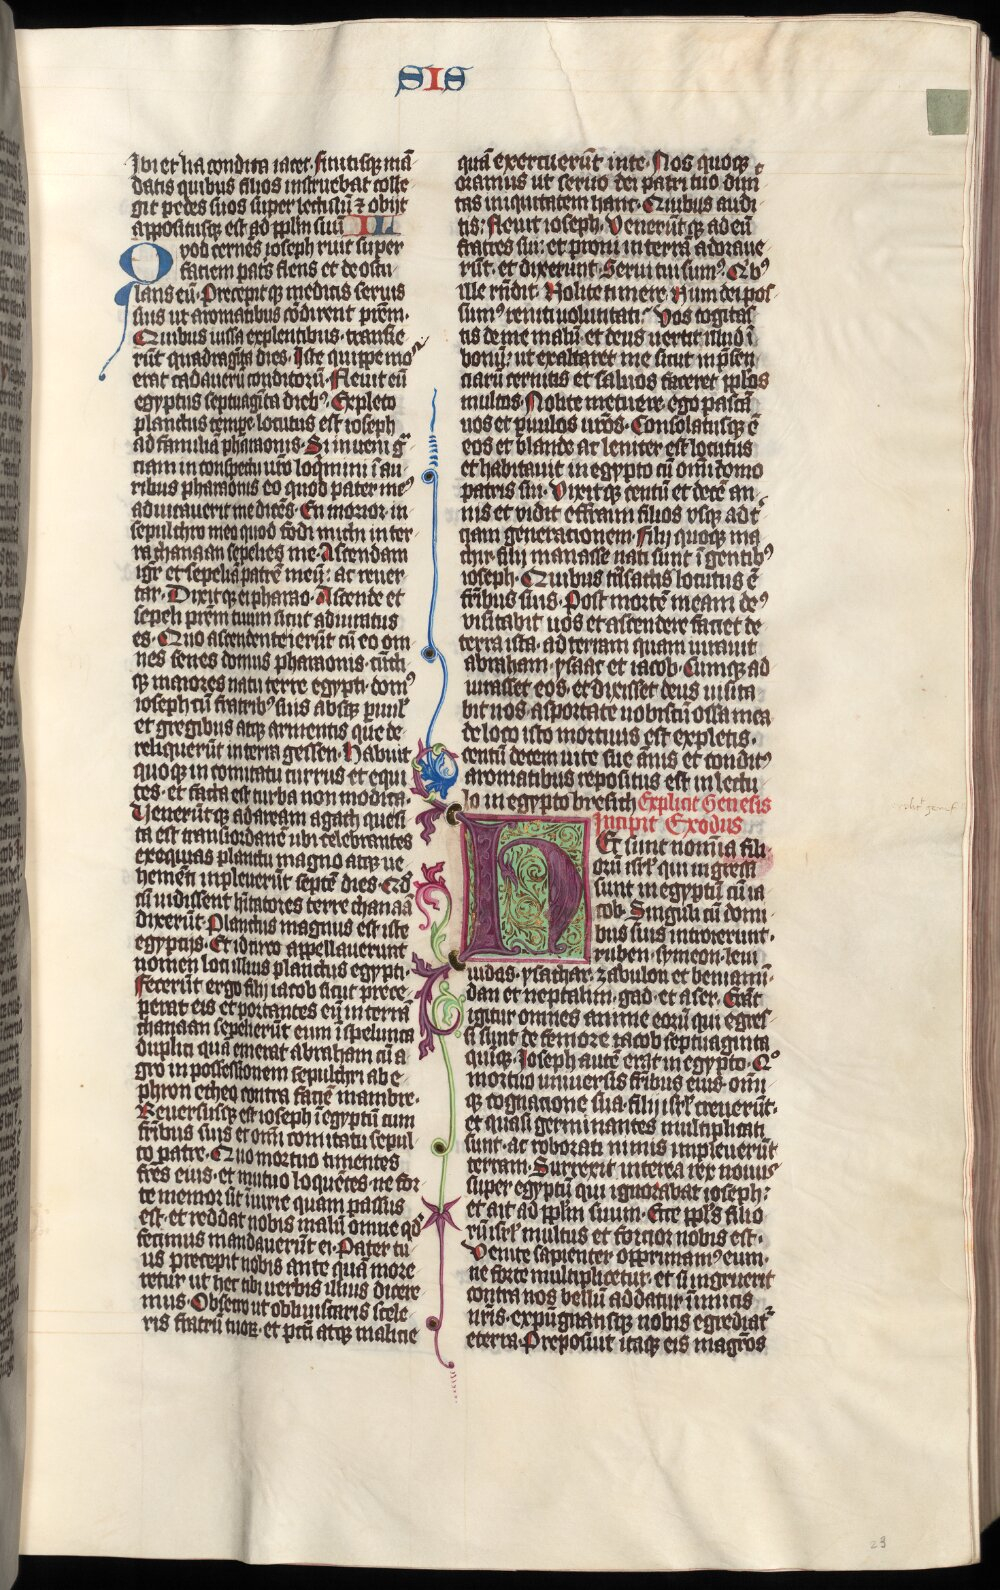 SIS
Ibi et lia condita iacet. finitisqꝫ mā
datis quibus filios instruebat colle
git pedes suos super lectulū ⁊ obijt
appositusqꝫ est ad pplm suū L
Quod cernes ioseph ruit super
faciem patˢ flens et deoscu
lans eū. Precepitqꝫ medicis seruis
suis ut aromatibus cōdirent prēm.
Quibus iussa explentibus. transie
rūt quadragīta dies. Iste quippe moˢ
erat cadauerū conditorū. Fleuit eū
egyptus septuagīta diebꝰ. Expleto
planctus tempe. locutus est ioseph
ad familiā pharaonis. Si inueni gʳ
ciam in conspectu uro loqmini ī au
ribus pharaonis eo quod pater meꝰ
adiurauerit me dicēs. En morior. in
sepulchro meo quod fodi michi in ter
ra chanaan sepelies me. Ascendam
igr et sepeliā patrē meū: ac reuer
tar. Dixitqꝫ ei pharao. Ascende et
sepeli prēm tuum sicut adiuratus
es. Quo ascendente ierūt cū eo om
nes senes domus pharaonis. cūcti
qꝫ maiores natu terre egypti. domꝰ
ioseph cū fratribꝰ suis absqꝫ puul
et gregibus atqꝫ armentis que de
reliquerūt in terra gessen. Habuit
quoqꝫ in comitatu currus et equi
tes. et facta est turba non modica.
Ueneruntqꝫ ad aream agath que si
ta est transiordanē ubi celebrantes
exequias planctu magno atqꝫ ue
hemēti inpleuerūt septē dies. Qd
cū uidissent hītatores terre chanaā
dixerūt. Planctus magnus est iste
egyptijs. Et idcirco appellauerunt
nomen loci illius planctus egypti.
Fecerūt ergo filij iacob sicut prece
perat eis et portantes eū in terrā
chanaan sepelierūt eum ī spelunca
duplici quā emerat abraham cū a
gro in possessionem sepulchri ab e
phron etheo contra faciē mambre.
Reuersusqꝫ est ioseph ī egyptū cum
fribus suis et omī comitatu sepul
to patre. Quo mortuo timentes
fres eius. et mutuo loquētes. ne for
te memor sit iniurie quam passus
est. et reddat nobis malū omne qd
fecimus mandauerūt ei. Pater tu
us precepit nobis ante quā more
retur ut hec tibi uerbis illius dicere
mus. Obsecro ut obliuiscaris scele
ris fratrū tuoꝝ. et pctī atqꝫ malicie
quā exercuerūt in te. Nos quoqꝫ
oramus ut seruo dei patri tuo dimit
tas iniquitatem hanc. Quibus audi
tis: fleuit ioseph. Venerūtqꝫ ad eū
fratres sui: et proni in terrā adoraue
rūt. et dixerunt. Serui tui sumꝰ. Qbꝰ
ille rn̄dit. Nolite timere. Num dei pos
sumꝰ reniti uoluntati. Vos cogitas
tis de me malū. et deus uertit illud ī
bonū: ut exaltaret me sicut in p̄sen
ciarū cernitis et saluos faceret pplos
multos. Nolite metuere. ego pascā
uos et puulos uros. Consolatusqꝫ ē
eos et blande ac leniter est locutus
et habitauit in egypto cū omī domo
patris sui. Vixitqꝫ centū et decē an
nis et vidit effraim filios vsqꝫ ad t
ciam generationem. Filij quoqꝫ ma
chir filij manasse nati sunt ī genibꝰ
ioseph. Quibus tn̄sactis locutus ē
fribus suis. Post mortē meam deꝰ
visitabit uos et ascendere faciet de
terra ista. ad terram quam iurauit
abraham. ysaac et iacob. Cumqꝫ ad
iurasset eos. et dixisset deus uisita
bit nos asportate uobiscū ossa mea
de loco isto mortuus est expletis.
centū decem uite sue annis et conditꝰ
aromatibus repositus est in loculo
lo in egypto bresith Explicit Genesis
Incipit Exodus
HEc sunt nomīa fili
orū isrl qui ingressi
sunt in egyptū cū ia
cob. Singuli cū domi
bus suis introierunt.
ruben. symeon. leui
iudas. ysachar. zabulon et beniamī.
dan et neptalim. gad. et aser. Erāt
igitur omnes anime eorū qui egres
si sunt de femore iacob septuaginta
quīqꝫ. Ioseph autē erat in egypto. Qº
mortuo uniuersis fribus eius. omī
qꝫ cognacione sua. filij isrl creuerūt.
et quasi germinantes multiplicati
sunt. ac roborati nimis impleuerūt
terram. Surrexit interea rex nouus
super egyptū qui ignorabat ioseph:
et ait ad pplm suum. Ecce ppls filio
rū isrl multus et fortior nobis est.
Venite sapienter opprimamꝰ eum.
ne forte multiplicetur. et si ingruerit
contra nos bellū addatur inimicis
nris. expugnatisqꝫ nobis egrediatˢ
e terra. Preposuit itaqꝫ eis magrōs
29